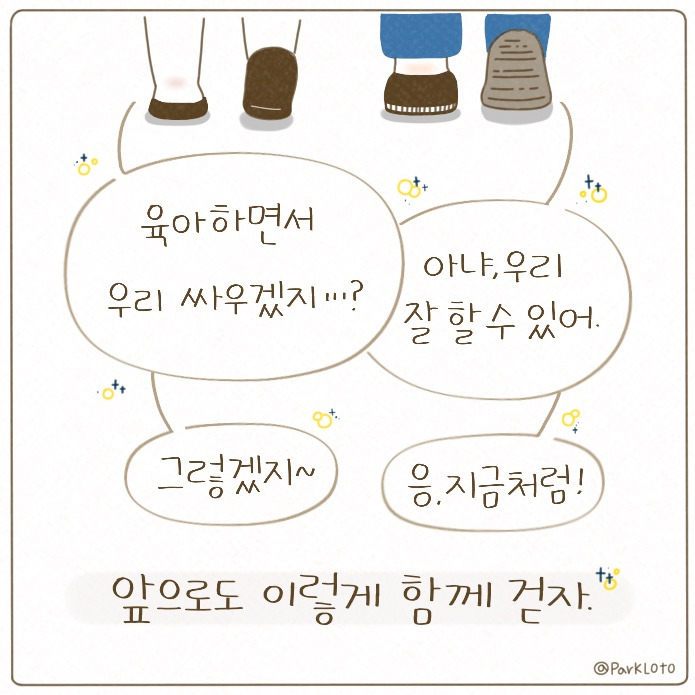 육아하면서
우리 싸우겠지...?
아냐, 우리
잘 할 수 있어.
그렇겠지~
응. 지금처럼!
앞으로도 이렇게 함께 걷자.
@PARKLOTO